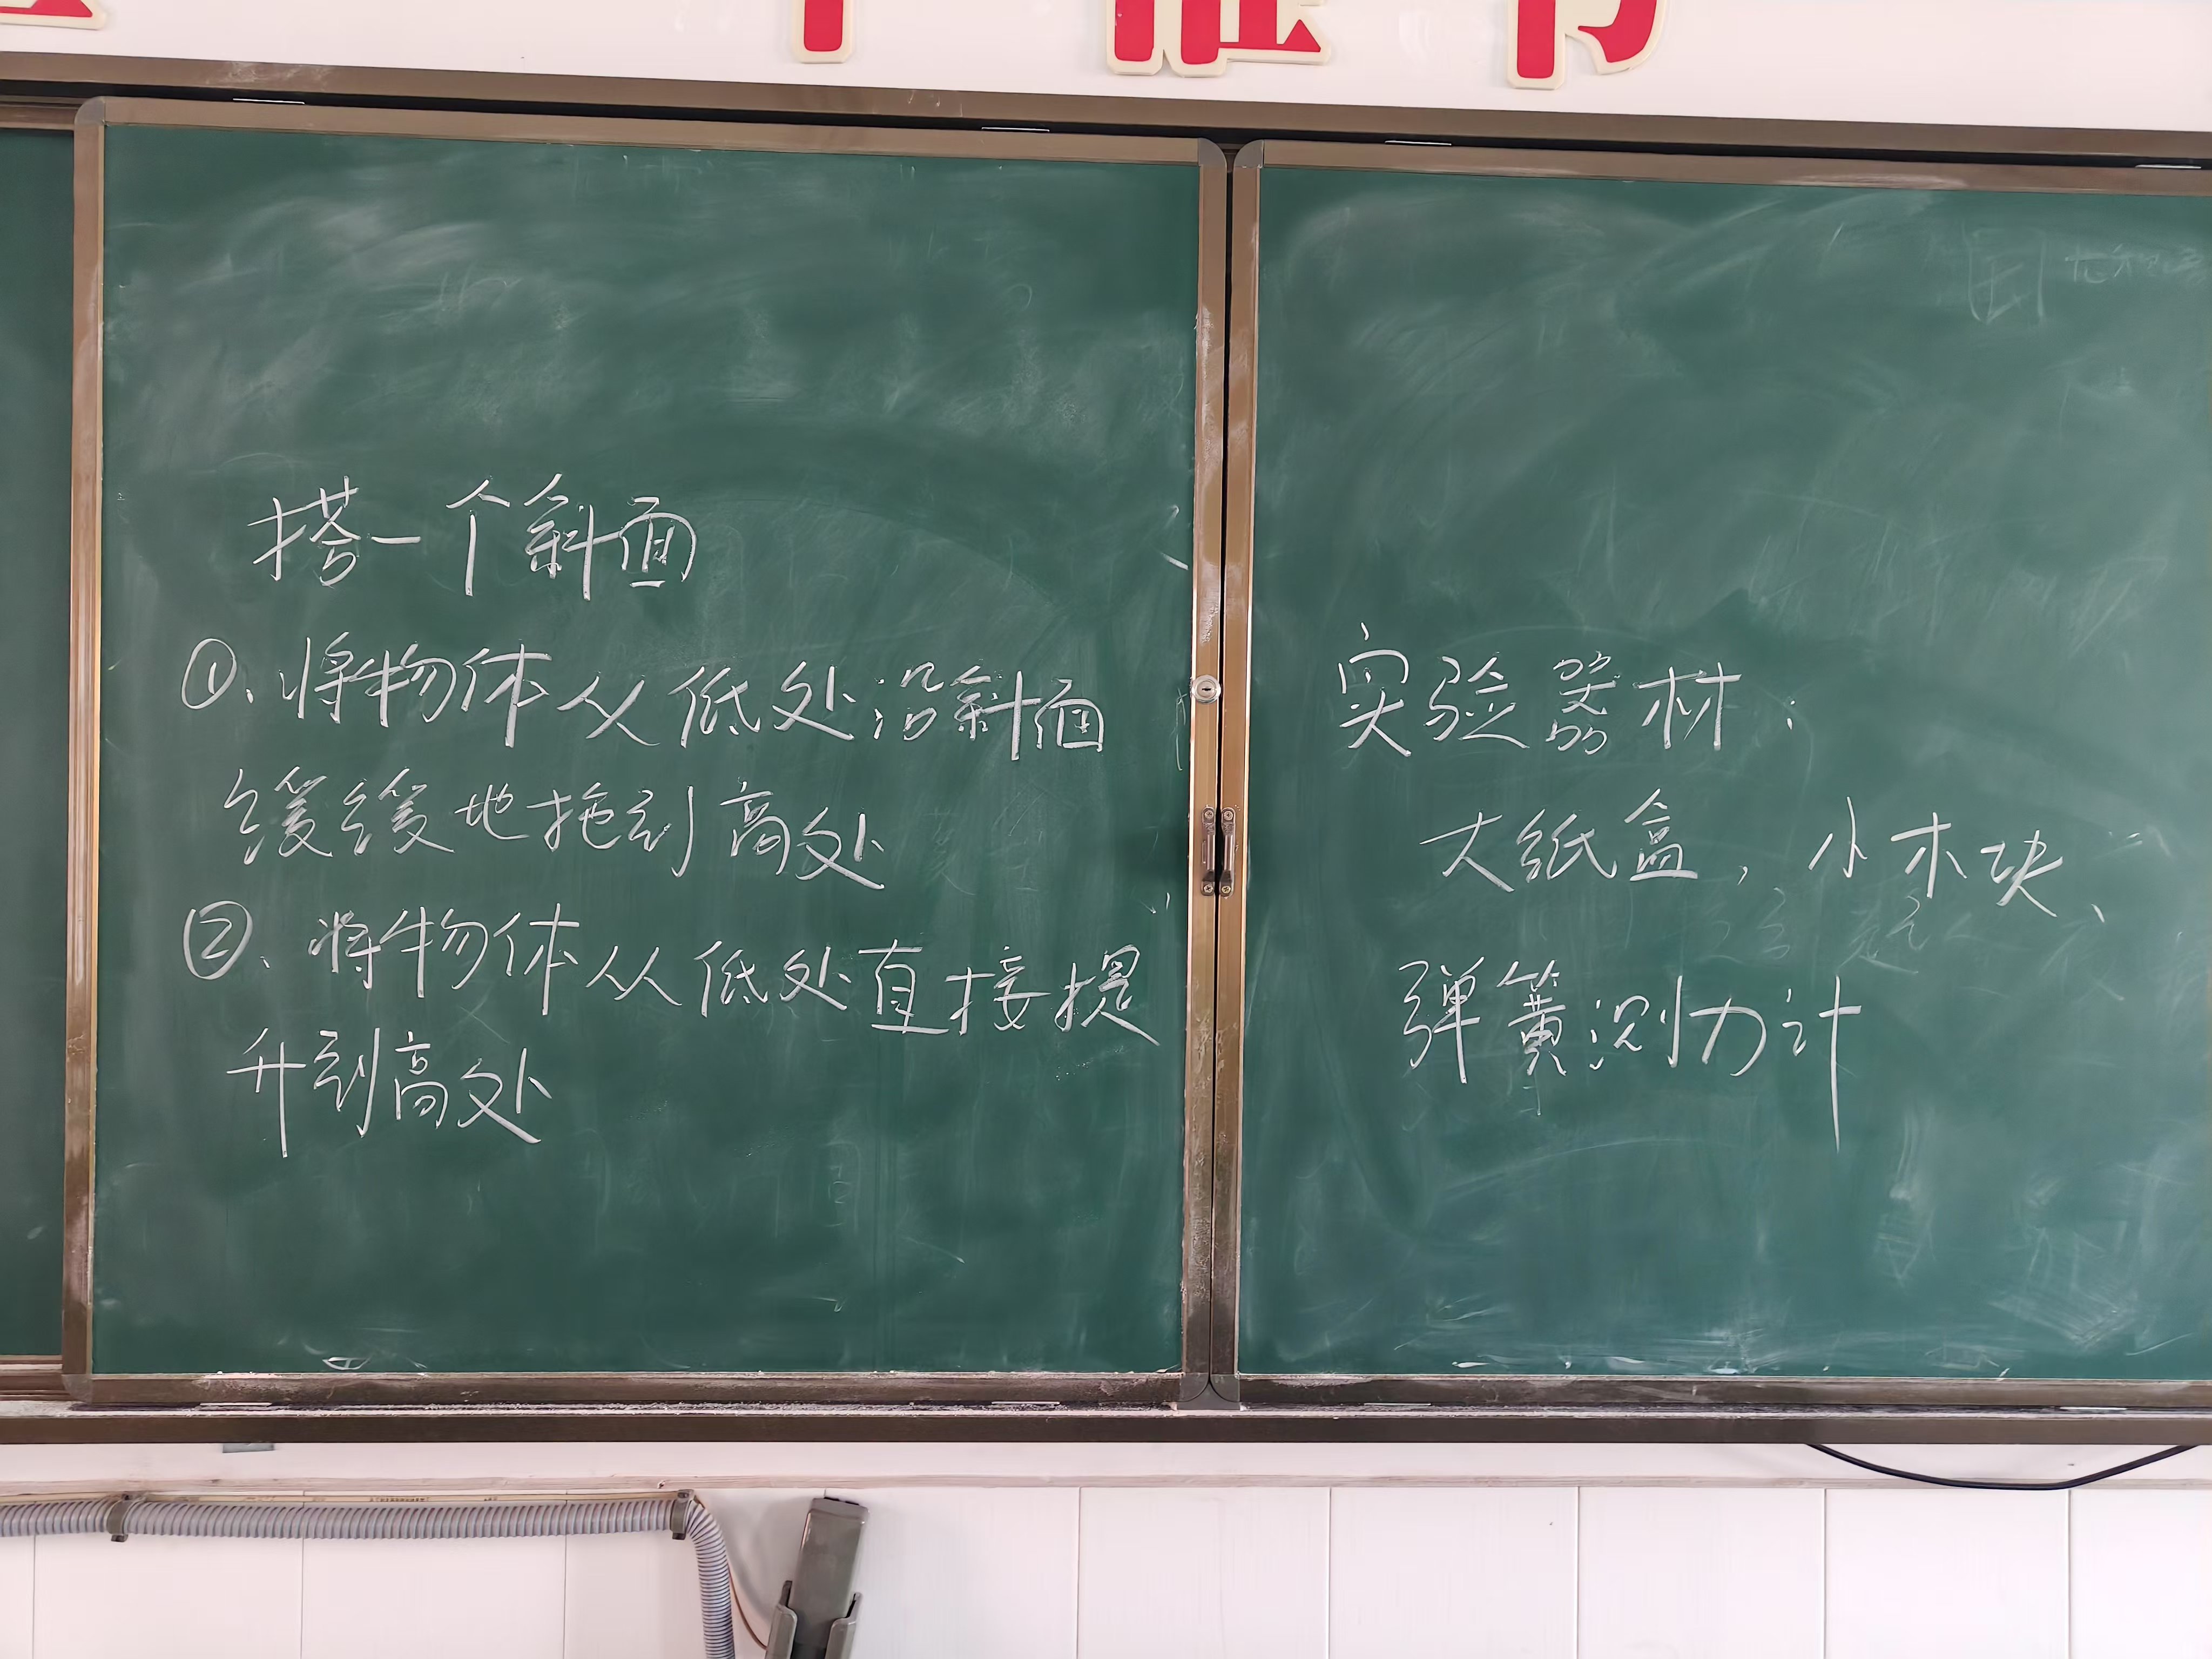 搭一个斜面
①、将物体从低处沿斜面
缓缓地拖到高处
②、将物体从低处直接提
升到高处
实验器材：
大纸盒，小木块、
弹簧测力计